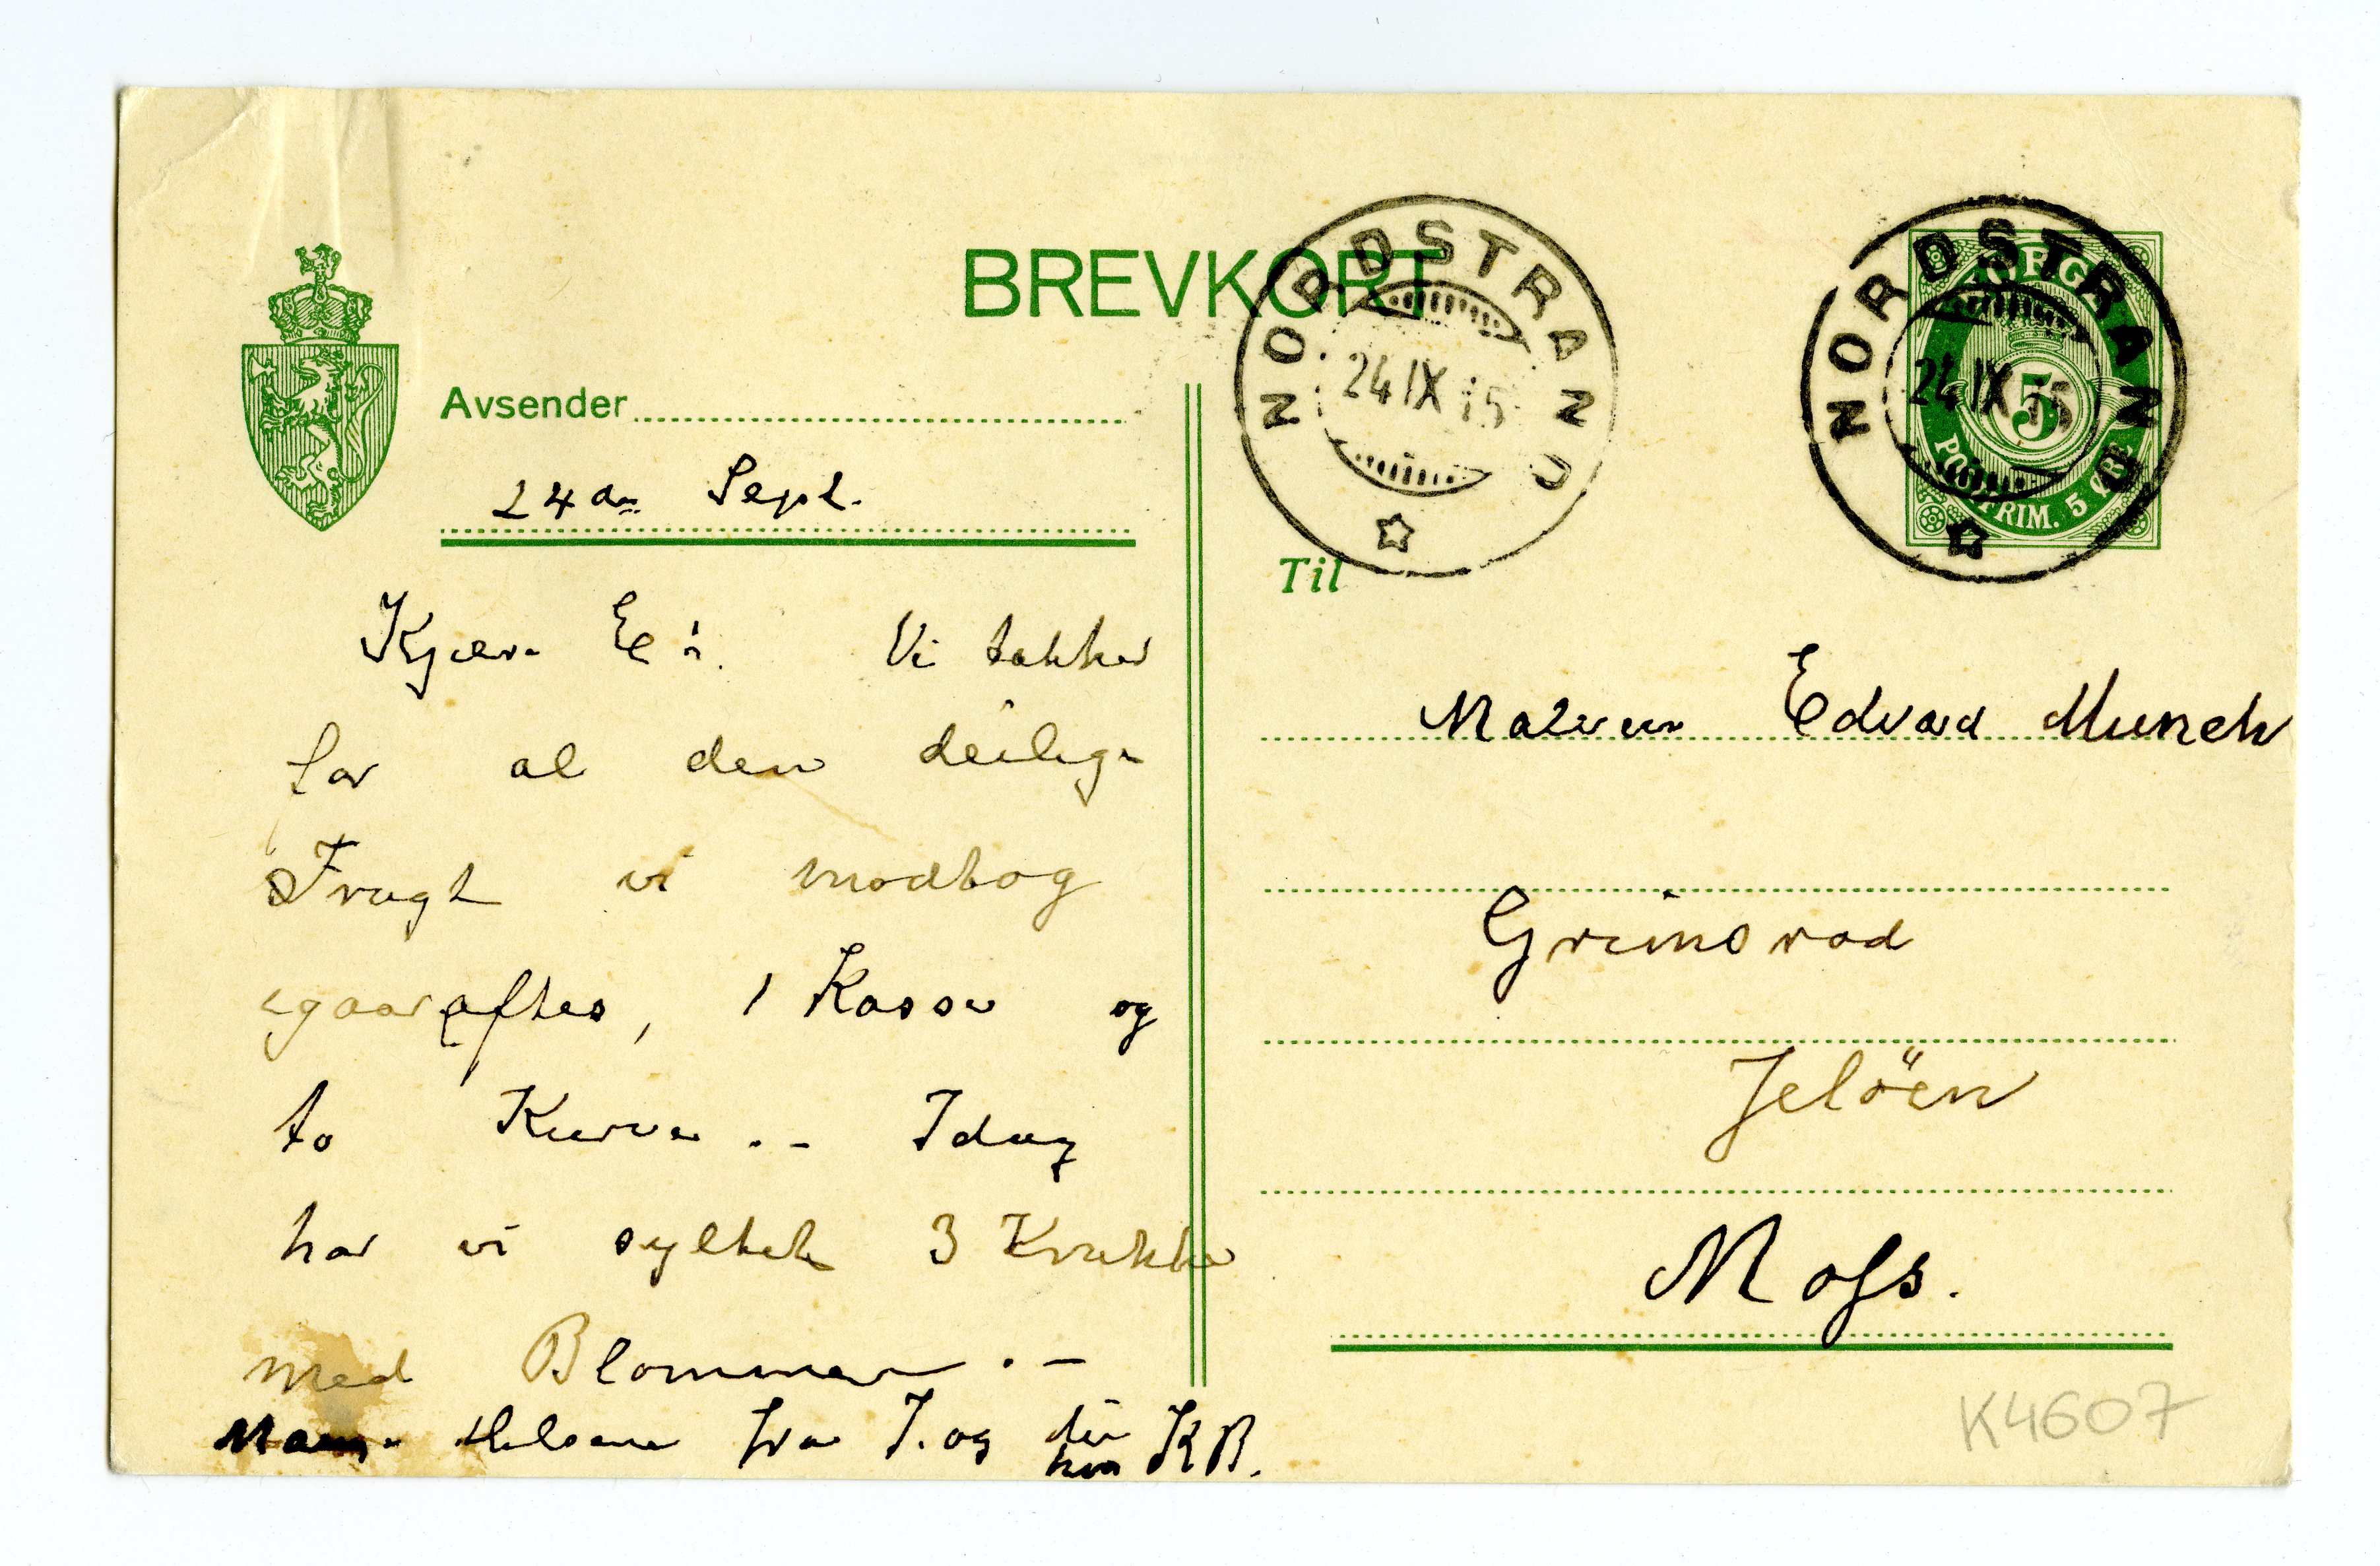 BREVKORT
Avsender
24de Sept.
Kjære E!. Vi takker
for al den deilige
Frugt vi modtog
igaaraftes, 1 Kasse og
to Kurve. – Idag
har vi syltet 3 Krukker
med Blommer. –
Mange Hilsener fra I. og din
KB.
NORDSTRAND
24 IX 15
NORDSTRAND
24 IX 15
NORGE
5
POSTFRIM. 5 ØRE
Til
Maleren Edvard Munch
Grimsrød
Jelöen
Moss.
K4607